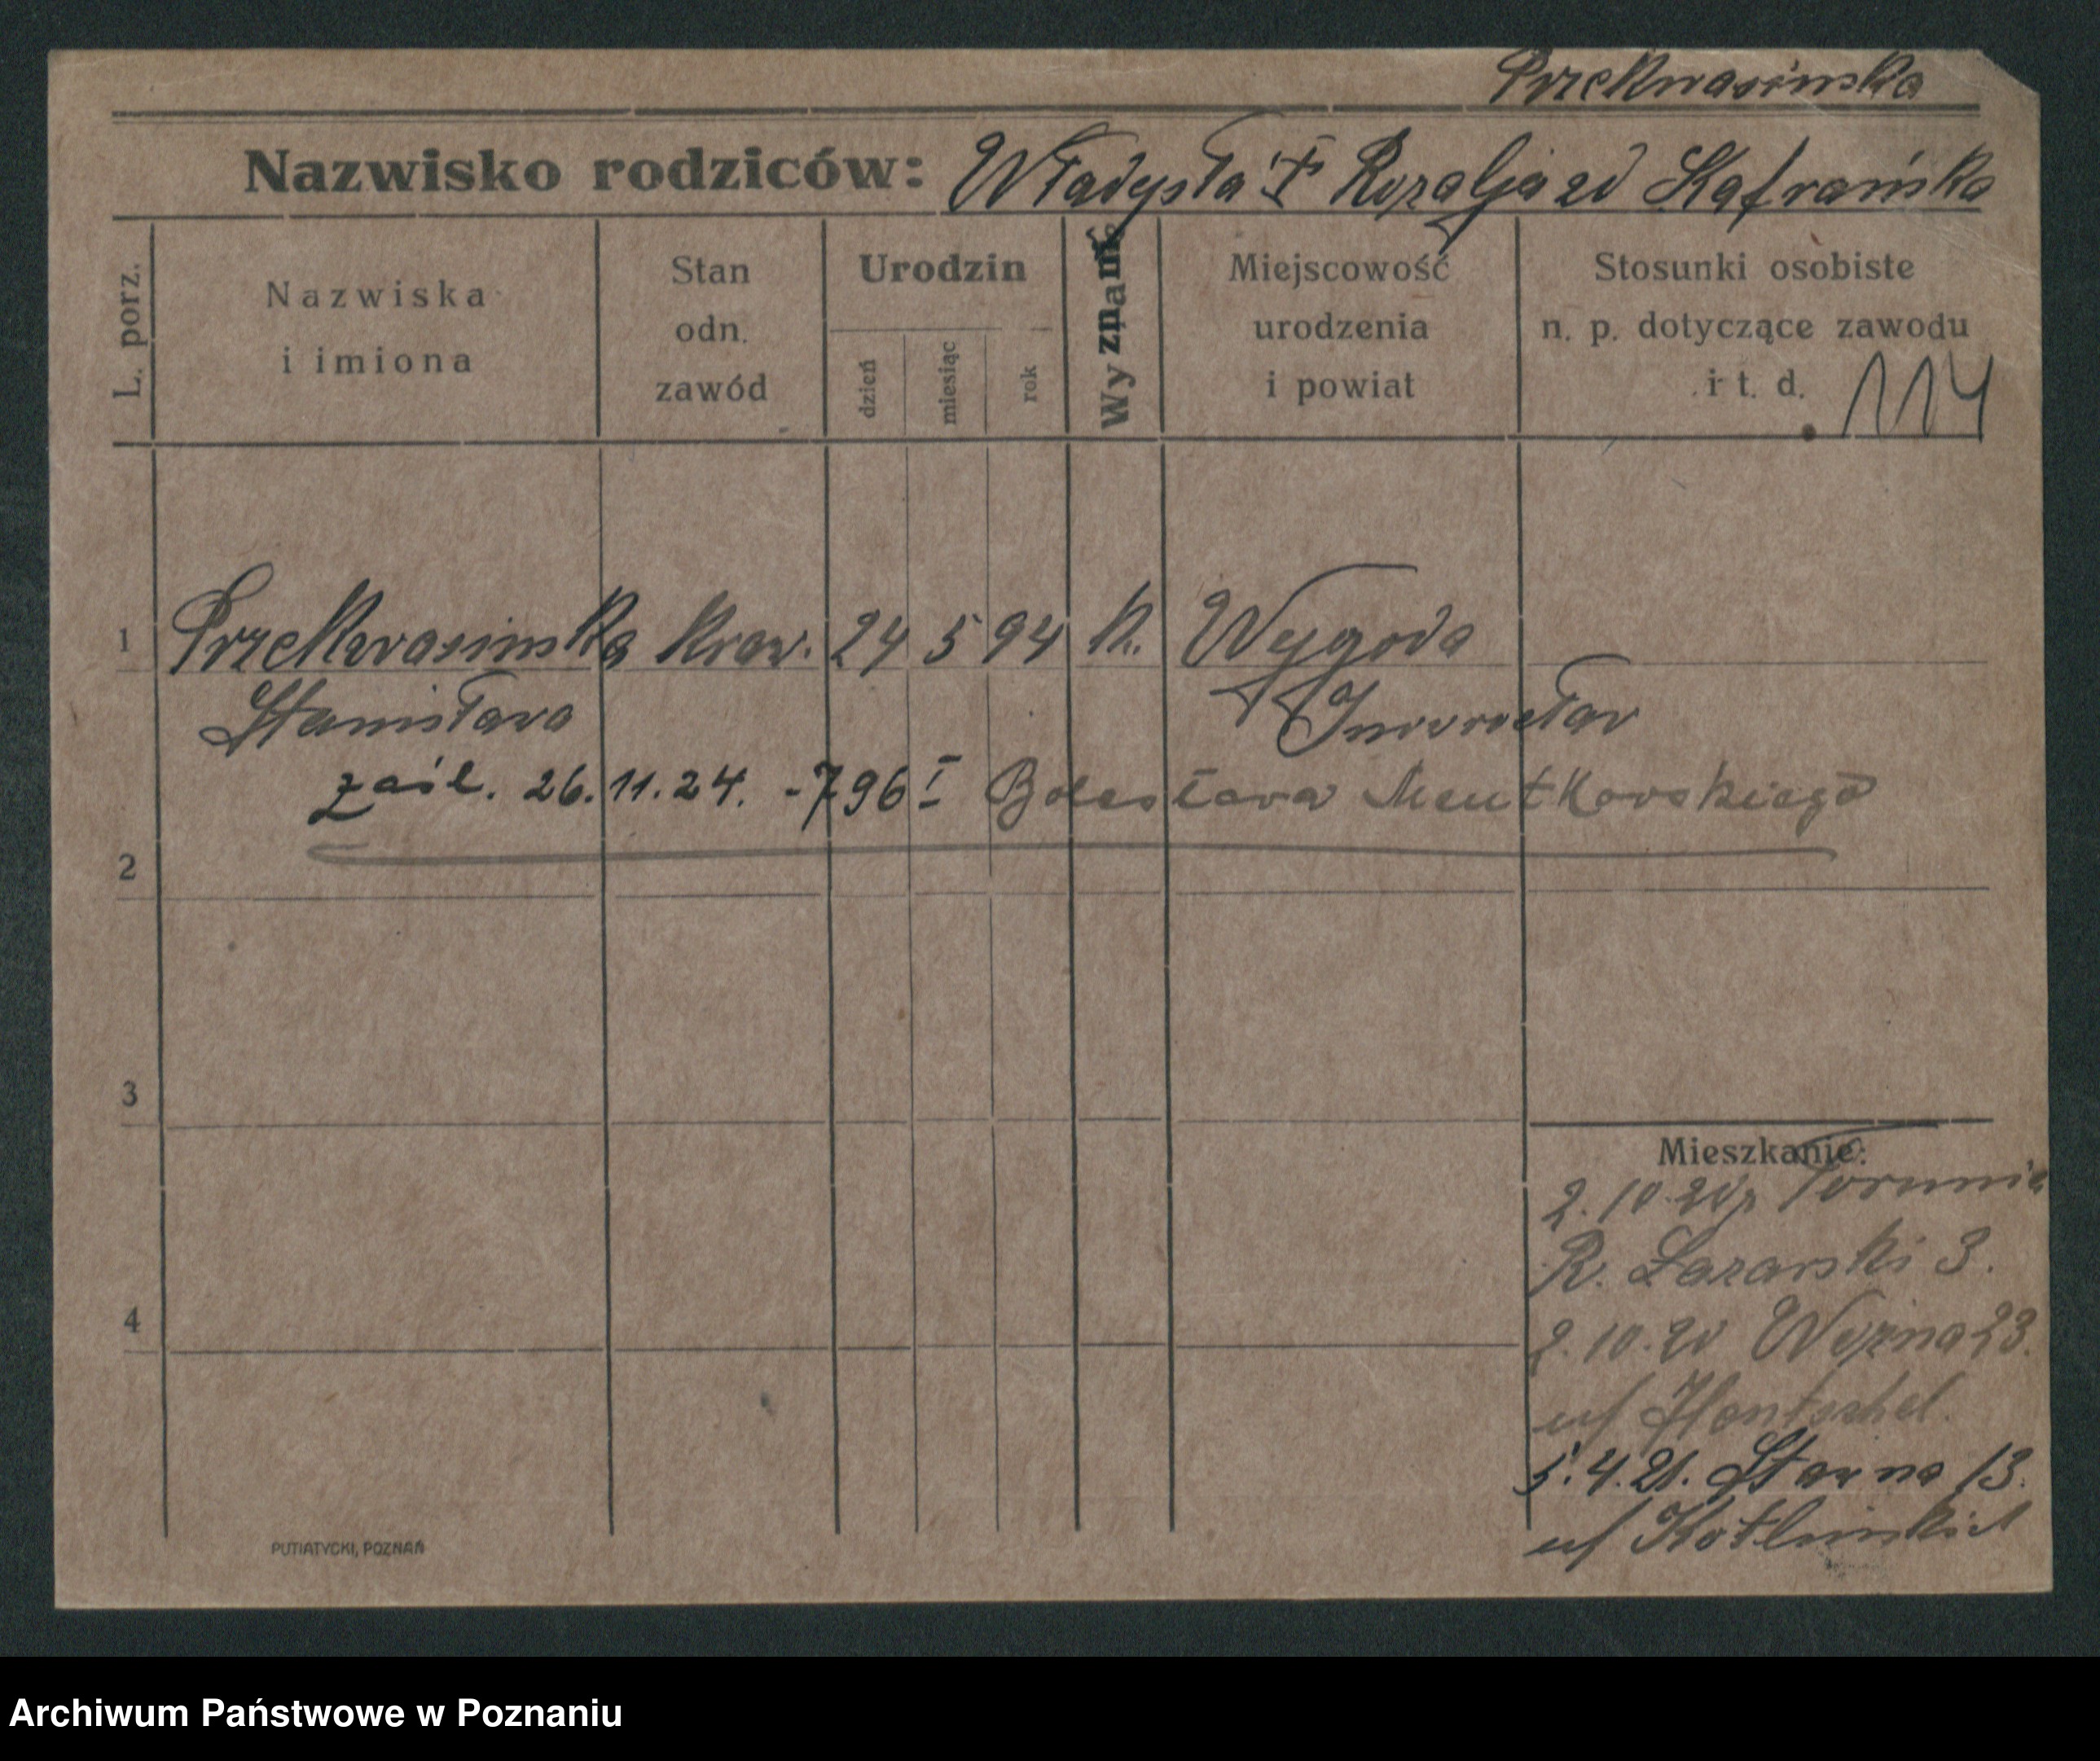 Przekwasinska
Nazwisko rodziców: Władysła Rozalja zd
L. porz.
Nazwiska i imiona
Stan odn. zawód
Urodzin
dzień
miesiąc
rok
Wyznanie
Miejscowość urodzenia i powiat
Stosunki osobiste n. p. dotyczące zawodu i t. d.
114
1 Przekwasinska kraw. 24 5 94 k. Wygoda
Stanisława Inowrocław
zaśl. 26.11.24. -796 I Bolesława Mentkowskiego
2
3
4
Mieszkanie:
2.10.20 z Torunia
R. Łazarski 3.
2.10.20 23.
u/ Hentschel.
5.4.21. 13.
u/
PUTIATYCKI, POZNAŃ
Archiwum Państwowe w Poznaniu